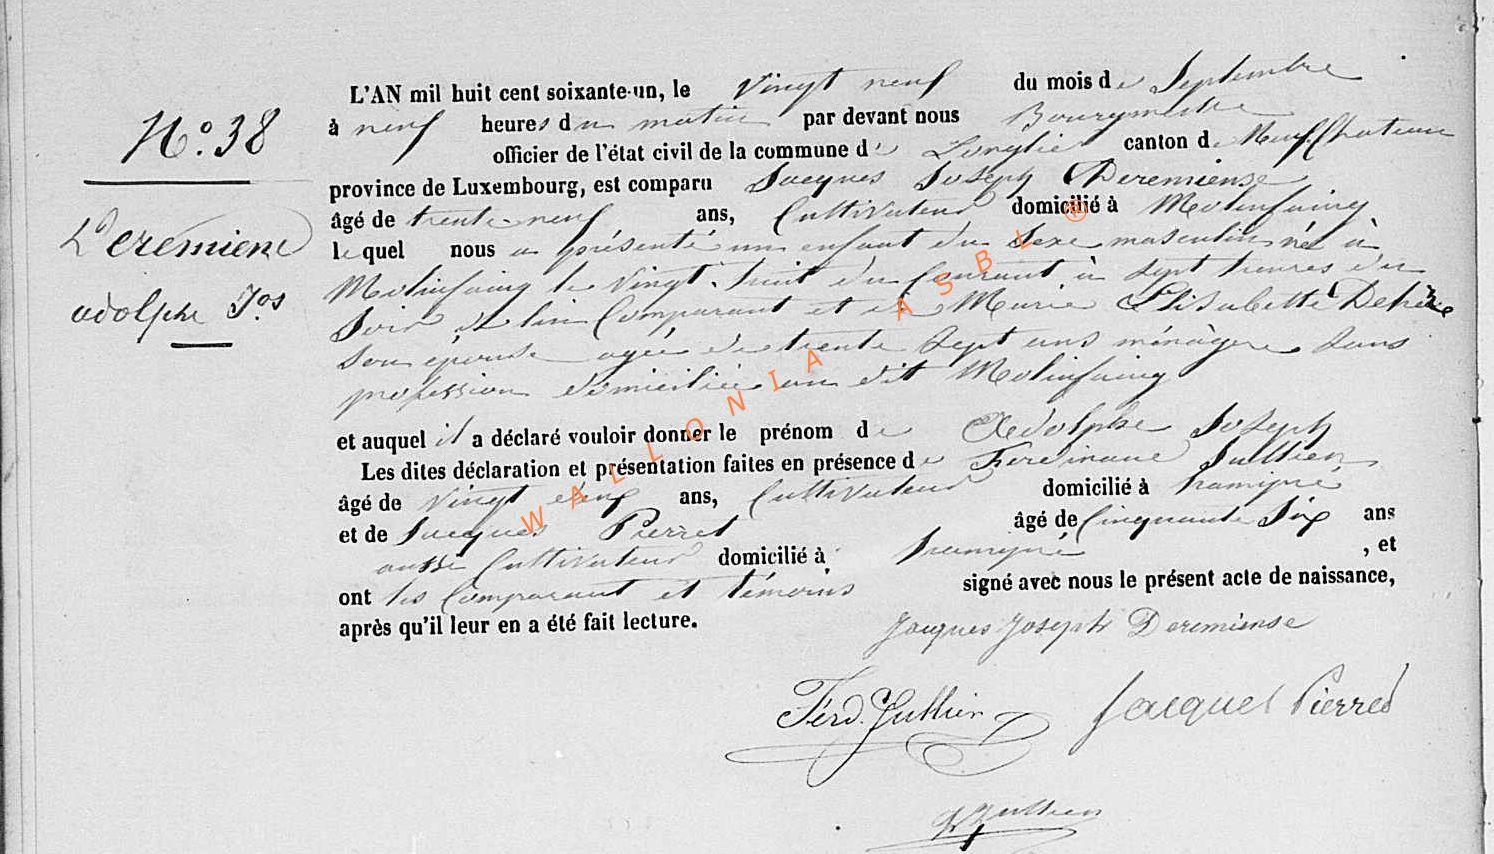 N.o 38
Deremiense
adolphe Jos
L'AN mil huit cent soixante-un, le Vingt neuf du mois de Septembre
à neuf heures du matin par devant nous Bourgmestre
officier de l'état civil de la commune de Longlier canton de Neufchateau
province de Luxembourg, est comparu Jacques Joseph Deremiense
âgé de trente-neuf ans, Cultivateur domicilié à Molinfaing
lequel nous a présenté un enfant du Sexe masculin né à
Molinfaing le Vingt-huit du Courant à Sept heures du
Soir de lui Comparant et de Marie Elisabette
Son épouse agée de trente Sept ans ménagère Sans
profession domiciliée au dit Molinfaing
et auquel il a déclaré vouloir donner le prénom de Adolphe Joseph
Les dites déclaration et présentation faites en présence de Ferdinand Jullien
âgé de Vingt ans, Cultivateur domicilié à
et de Jacques Pierret âgé de Cinquante Six ans
aussi Cultivateur domicilié à , et
ont les Comparant et témoins signé avec nous le présent acte de naissance,
après qu'il leur en a été fait lecture.
Jacques Joseph Deremiense
Ferd. Jullien Jacques Pierret
Jullien
WALLONIA ASBL ®